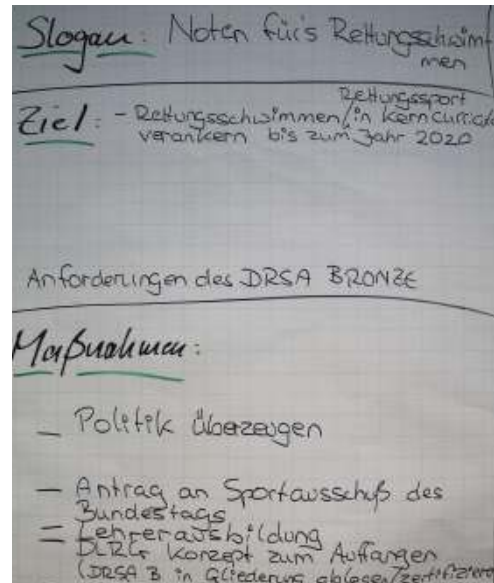 Slogan: Noten für's Rettungsschwim-
men
Rettungssport
Ziel: - Rettungsschwimmen/in Kerncurricula
verankern bis zum Jahr 2020
Anforderungen des DRSA BRONZE
Maßnahmen:
- Politik überzeugen
- Antrag an Sportausschuß des
Bundestags
= Lehrerausbildung
DLRG Konzept zum Auffangen
(DRSA B in Gliederung ablegen/zertifizieren